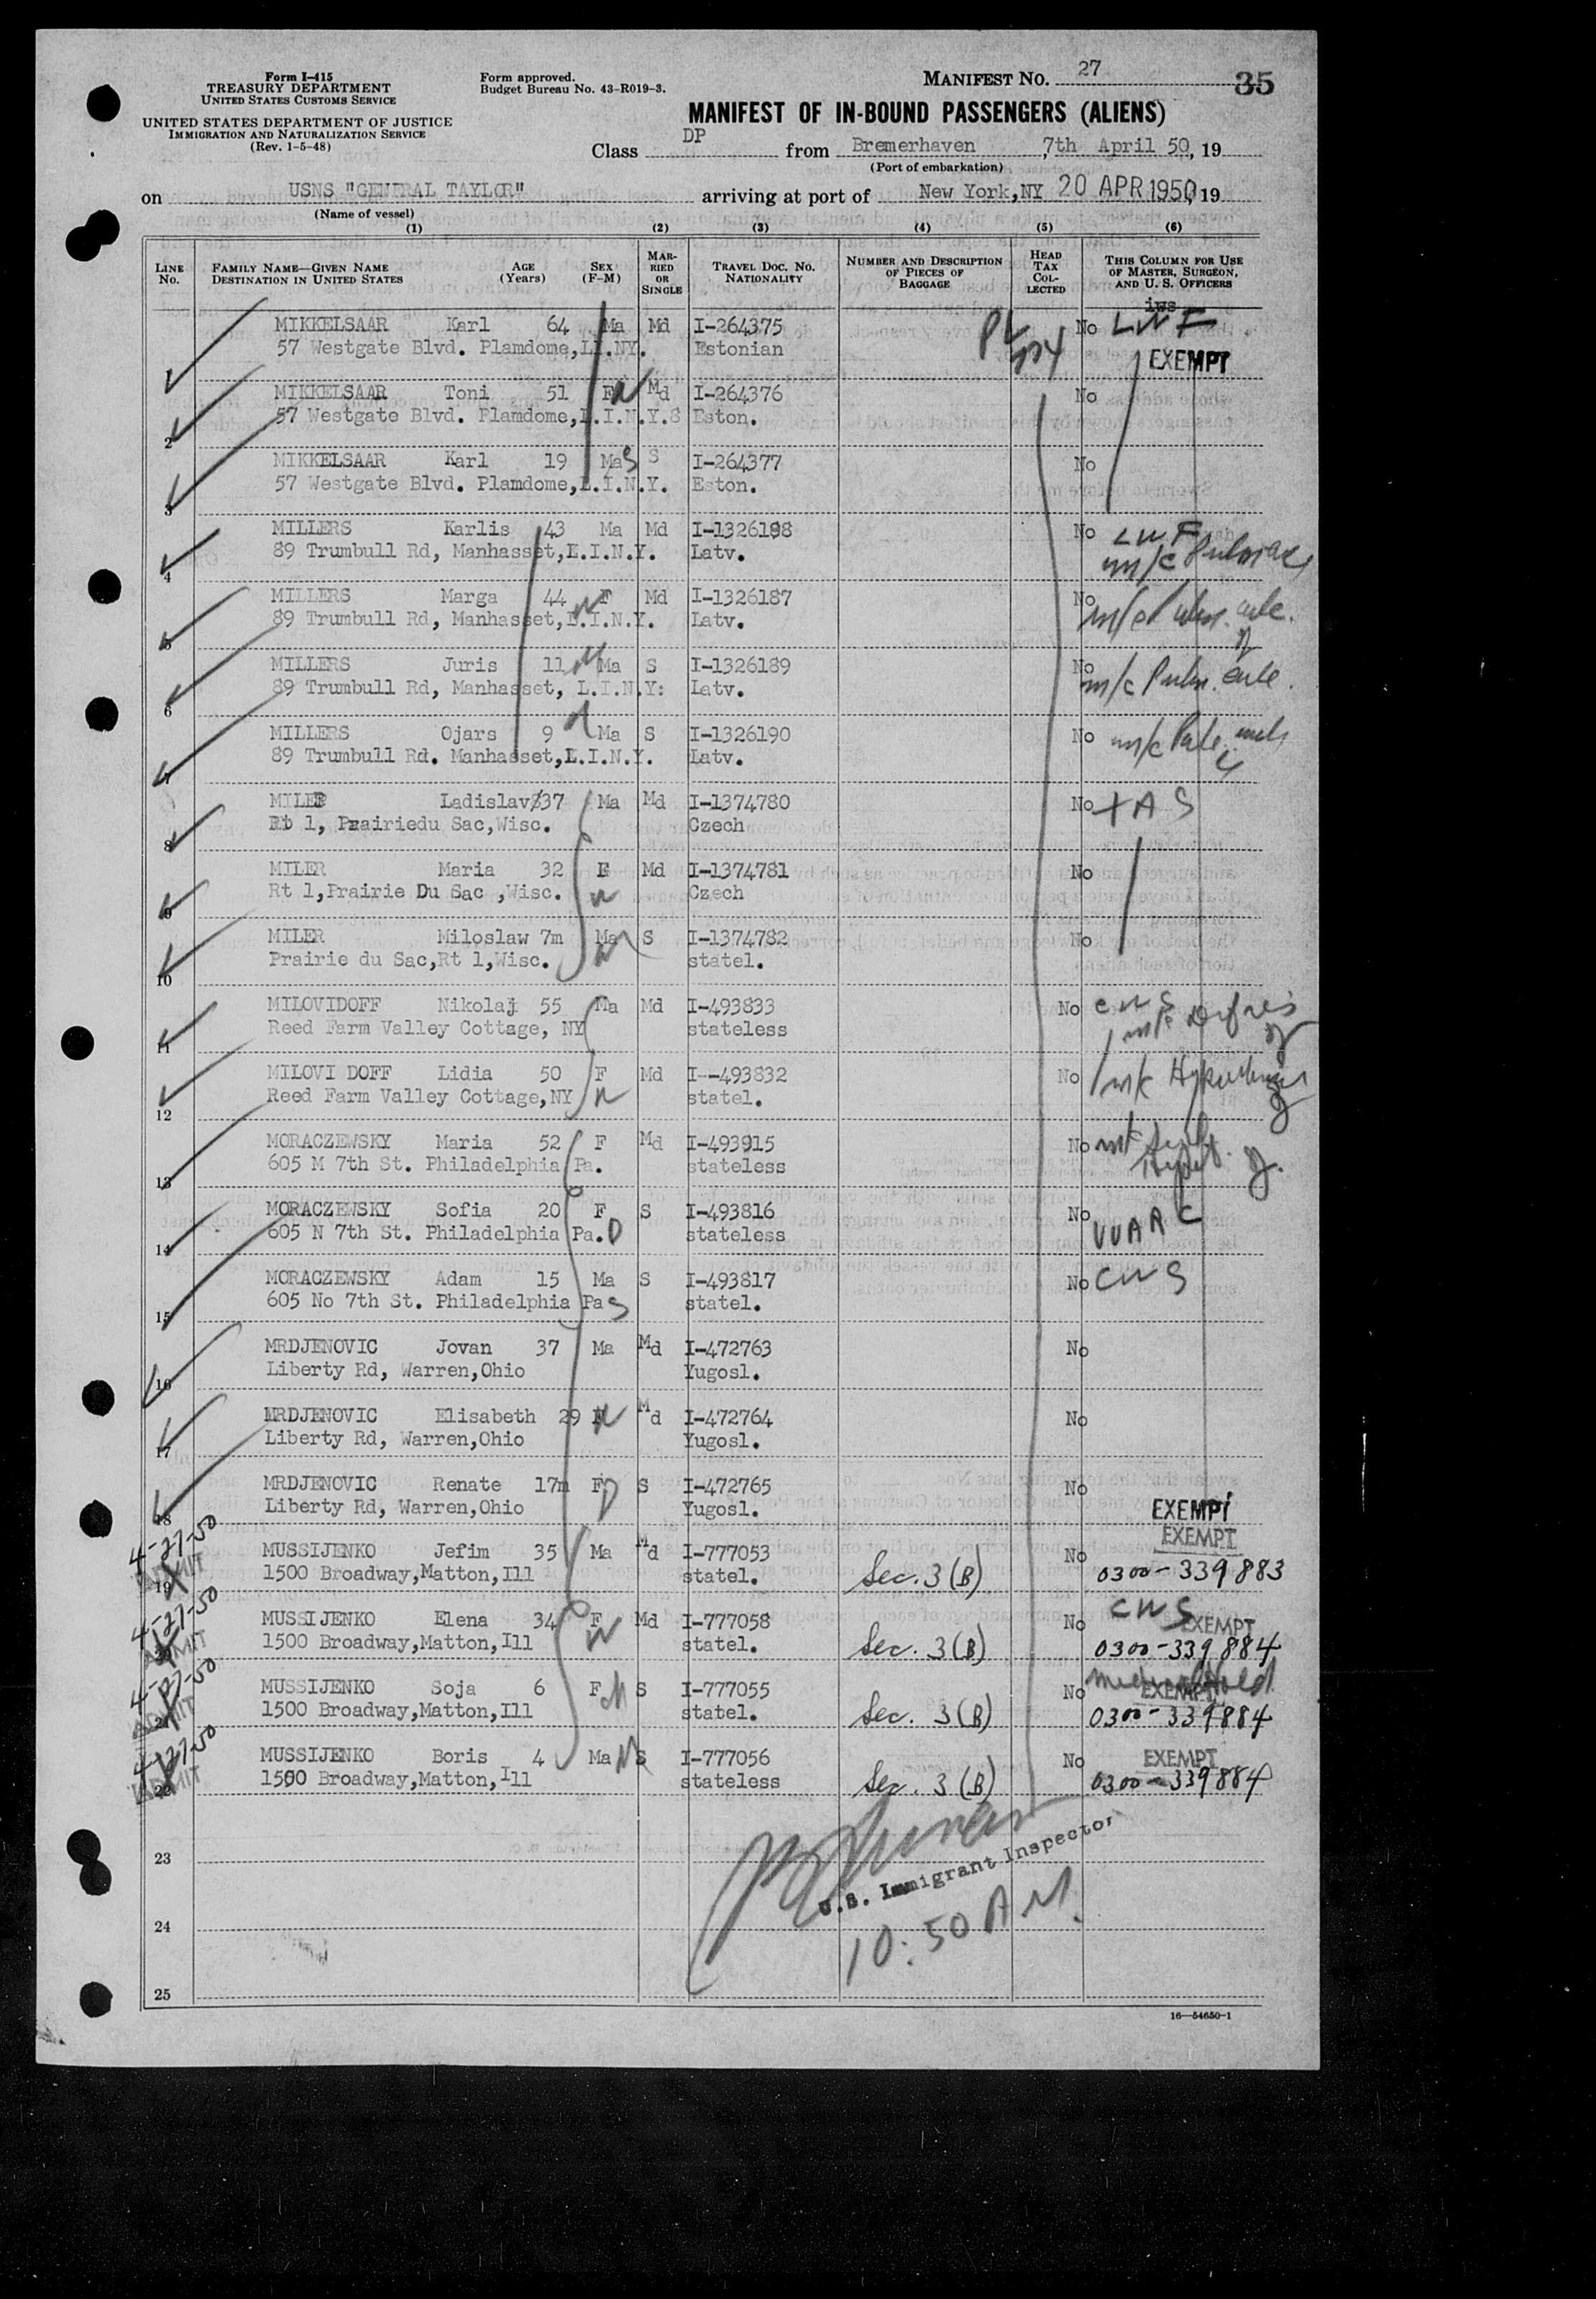 Form I-415
TREASURY DEPARTMENT
UNITED STATES CUSTOMS SERVICE
UNITED STATES DEPARTMENT OF JUSTICE
IMMIGRATION AND NATURALIZATION SERVICE
(Rev. 1-5-48)
Form approved.
Budget Bureau No. 43-R019-3.
MANIFEST NO. 27
35
MANIFEST OF IN-BOUND PASSENGERS (ALIENS)
Class DP from Bremerhaven, 7th April 50, 19
(Port of embarkation)
on USNS "GENERAL TAYLOR" arriving at port of New York,NY 20 APR 1950, 19
(Name of vessel)
(1) (2) (3) (4) (5) (6)
LINE No. FAMILY NAME—GIVEN NAME DESTINATION IN UNITED STATES AGE (Years) SEX (F-M) MARRIED OR SINGLE TRAVEL DOC. NO. NATIONALITY NUMBER AND DESCRIPTION OF PIECES OF BAGGAGE HEAD TAX COLLECTED THIS COLUMN FOR USE OF MASTER, SURGEON, AND U. S. OFFICERS
ins
MIKKELSAAR Karl 64 Ma Md I-264375 No LWF
57 Westgate Blvd. Plamdome,LI.NY. Estonian EXEMPT
1
MIKKELSAAR Toni 51 F W Md I-264376 No
57 Westgate Blvd. Plamdome,L.I.N.Y.S Eston.
2
MIKKELSAAR Karl 19 Ma S S I-264377 No
57 Westgate Blvd. Plamdome,L.I.N.Y. Eston.
3
MILLERS Karlis 43 Ma Md I-1326188 No LWF
89 Trumbull Rd, Manhasset,L.I.N.Y. Latv. m/c
4
MILLERS Marga 44 W F Md I-1326187 No
89 Trumbull Rd, Manhasset,L.I.N.Y. Latv. m/c
5
MILLERS Juris 11 Ma S I-1326189 No
89 Trumbull Rd, Manhasset, L.I.N.Y: Latv. m/c Pulm.
6
MILLERS Ojars 9 Ma S I-1326190 No m/c
89 Trumbull Rd. Manhasset,L.I.N.Y. Latv.
7
MILER Ladislav 37 Ma Md I-1374780 No
Rt 1, Prairiedu Sac,Wisc. Czech
8
MILER Maria 32 F Md I-1374781 No
Rt 1,Prairie Du Sac ,Wisc. W Czech
9
MILER Miloslaw 7m Ma S I-1374782 No
Prairie du Sac,Rt 1,Wisc. statel.
10
MILOVIDOFF Nikolaj 55 Ma Md I-493833 No CWS
Reed Farm Valley Cottage, NY stateless m/c
11
MILOVI DOFF Lidia 50 F Md I--493832 No m/c
Reed Farm Valley Cottage,NY W statel.
12
MORACZEWSKY Maria 52 F Md I-493915 No m/c
605 M 7th St. Philadelphia Pa. stateless
13
MORACZEWSKY Sofia 20 F S I-493816 No
605 N 7th St. Philadelphia Pa. D stateless
14
MORACZEWSKY Adam 15 Ma S I-493817 No CWS
605 No 7th St. Philadelphia Pa S statel.
15
MRDJENOVIC Jovan 37 Ma Md I-472763 No
Liberty Rd, Warren,Ohio Yugosl.
16
MRDJENOVIC Elisabeth 29 W Md I-472764 No
Liberty Rd, Warren,Ohio Yugosl.
17
MRDJENOVIC Renate 17m F D S I-472765 No
Liberty Rd, Warren,Ohio Yugosl. EXEMPT
18
4-27-50 EXEMPT
MUSSIJENKO Jefim 35 Ma Md I-777053 No
ADMIT 1500 Broadway,Matton,Ill statel. Sec. 3(B) 0300-339883
19
4-27-50 CWS
MUSSIJENKO Elena 34 F Md I-777058 No EXEMPT
ADMIT 1500 Broadway,Matton,Ill W statel. Sec. 3(B) 0300-339884
20
4-27-50
MUSSIJENKO Soja 6 F S I-777055 No EXEMPT
ADMIT 1500 Broadway,Matton,Ill statel. Sec. 3(B) 0300-339884
21
4-27-50
MUSSIJENKO Boris 4 Ma S I-777056 No EXEMPT
ADMIT 1500 Broadway,Matton,Ill stateless Sec. 3(B) 0300-339884
22
23
U.S. Immigrant Inspector
24
10:50 AM.
25
16—54650-1